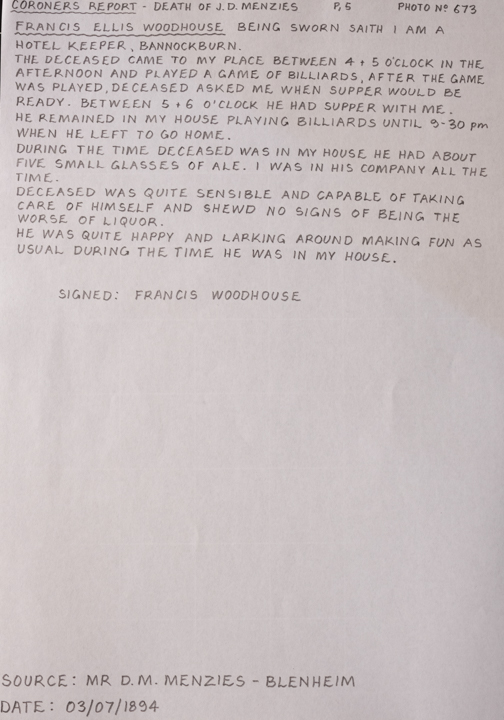 CORONERS REPORT - DEATH OF J.D. MENZIES P,5 PHOTO Nº 673
FRANCIS ELLIS WOODHOUSE BEING SWORN SAITH I AM A
HOTEL KEEPER, BANNOCKBURN.
THE DECEASED CAME TO MY PLACE BETWEEN 4 + 5 O'CLOCK IN THE
AFTERNOON AND PLAYED A GAME OF BILLIARDS, AFTER THE GAME
WAS PLAYED, DECEASED ASKED ME WHEN SUPPER WOULD BE
READY. BETWEEN 5 + 6 O'CLOCK HE HAD SUPPER WITH ME.
HE REMAINED IN MY HOUSE PLAYING BILLIARDS UNTIL 9-30 pm
WHEN HE LEFT TO GO HOME.
DURING THE TIME DECEASED WAS IN MY HOUSE HE HAD ABOUT
FIVE SMALL GLASSES OF ALE. I WAS IN HIS COMPANY ALL THE
TIME.
DECEASED WAS QUITE SENSIBLE AND CAPABLE OF TAKING
CARE OF HIMSELF AND SHEWD NO SIGNS OF BEING THE
WORSE OF LIQUOR.
HE WAS QUITE HAPPY AND LARKING AROUND MAKING FUN AS
USUAL DURING THE TIME HE WAS IN MY HOUSE.
SIGNED: FRANCIS WOODHOUSE
SOURCE: MR D.M. MENZIES - BLENHEIM
DATE: 03/07/1894